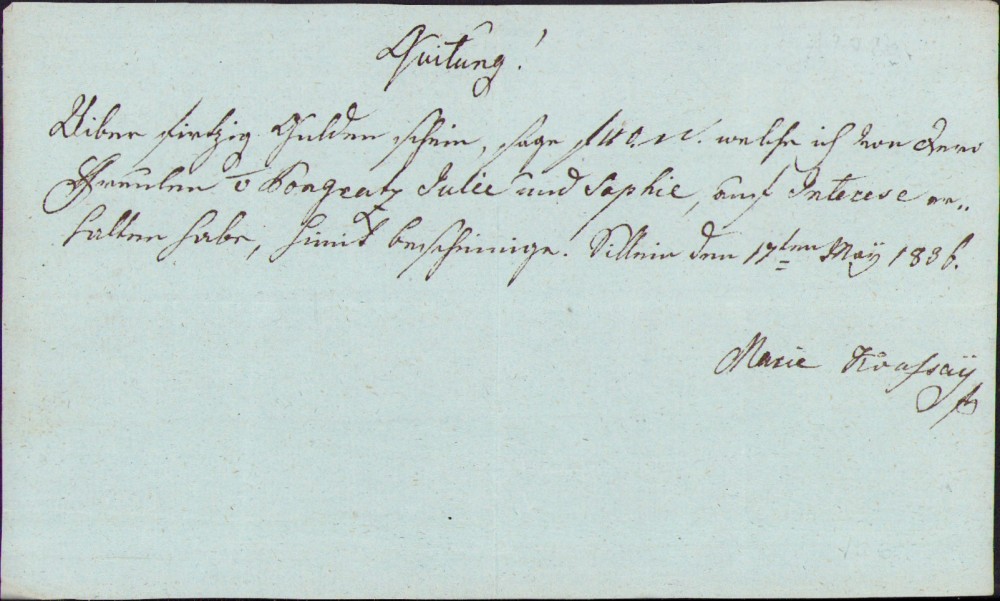 Quitung!
Uiber vierzig Gulden schein, sage f 40. W. welche ich von denen
Freulen v Pongratz Julie und Sophie, auf Interese er..
halten habe, himit bescheinige. Sillein den 17ten May 1836.
Marie